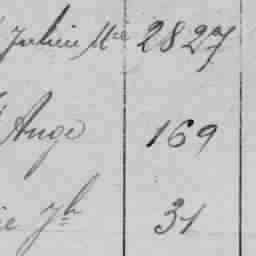 Julien Mie 2827
Ange 169
ie Jh 31